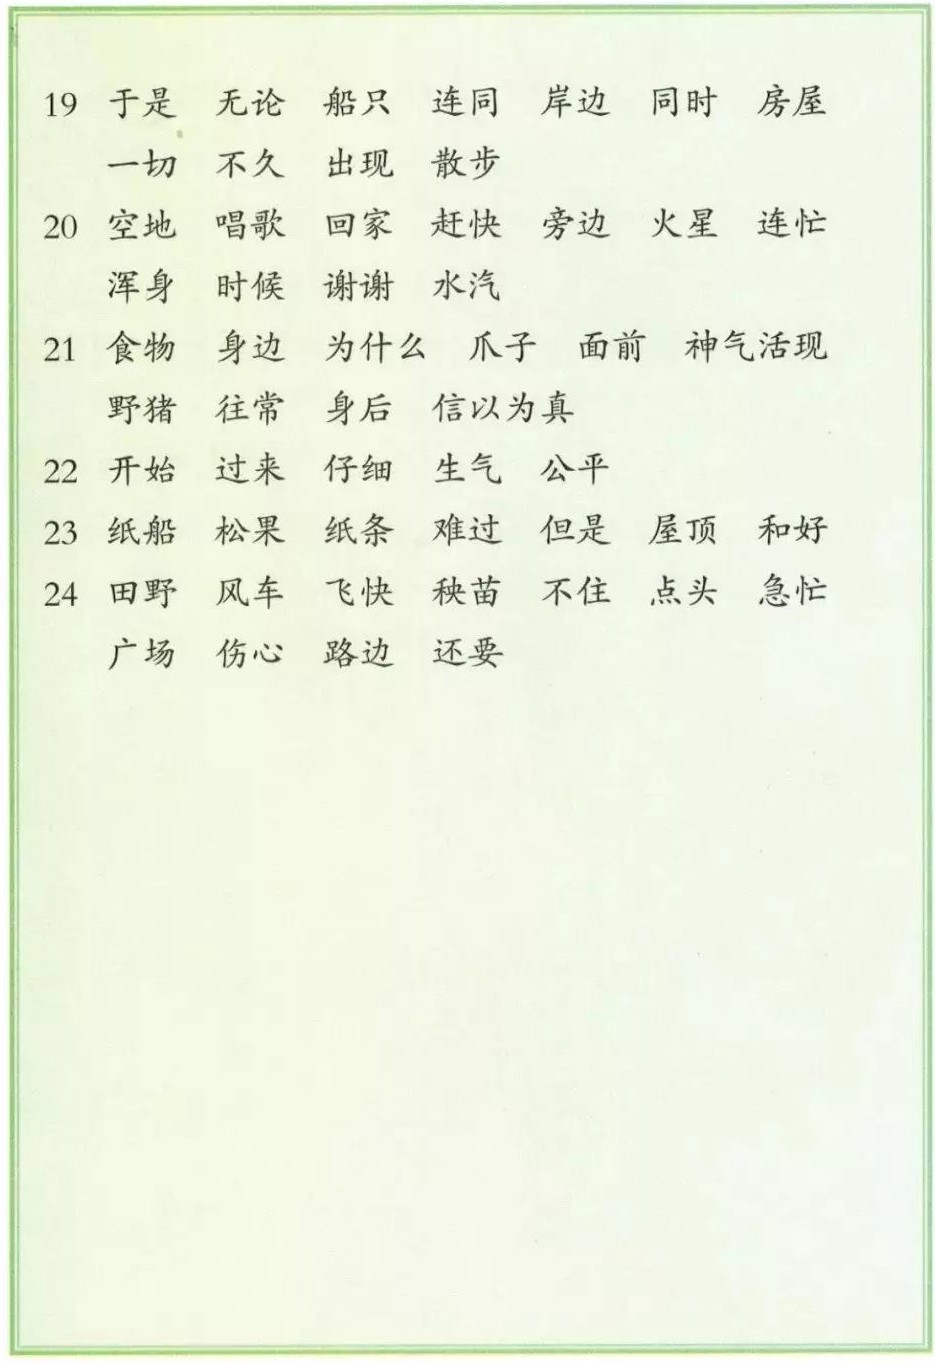 19 于是 无论 船只 连同 岸边 同时 房屋
一切 不久 出现 散步
20 空地 唱歌 回家 赶快 旁边 火星 连忙
浑身 时候 谢谢 水汽
21 食物 身边 为什么 爪子 面前 神气活现
野猪 往常 身后 信以为真
22 开始 过来 仔细 生气 公平
23 纸船 松果 纸条 难过 但是 屋顶 和好
24 田野 风车 飞快 秧苗 不住 点头 急忙
广场 伤心 路边 还要